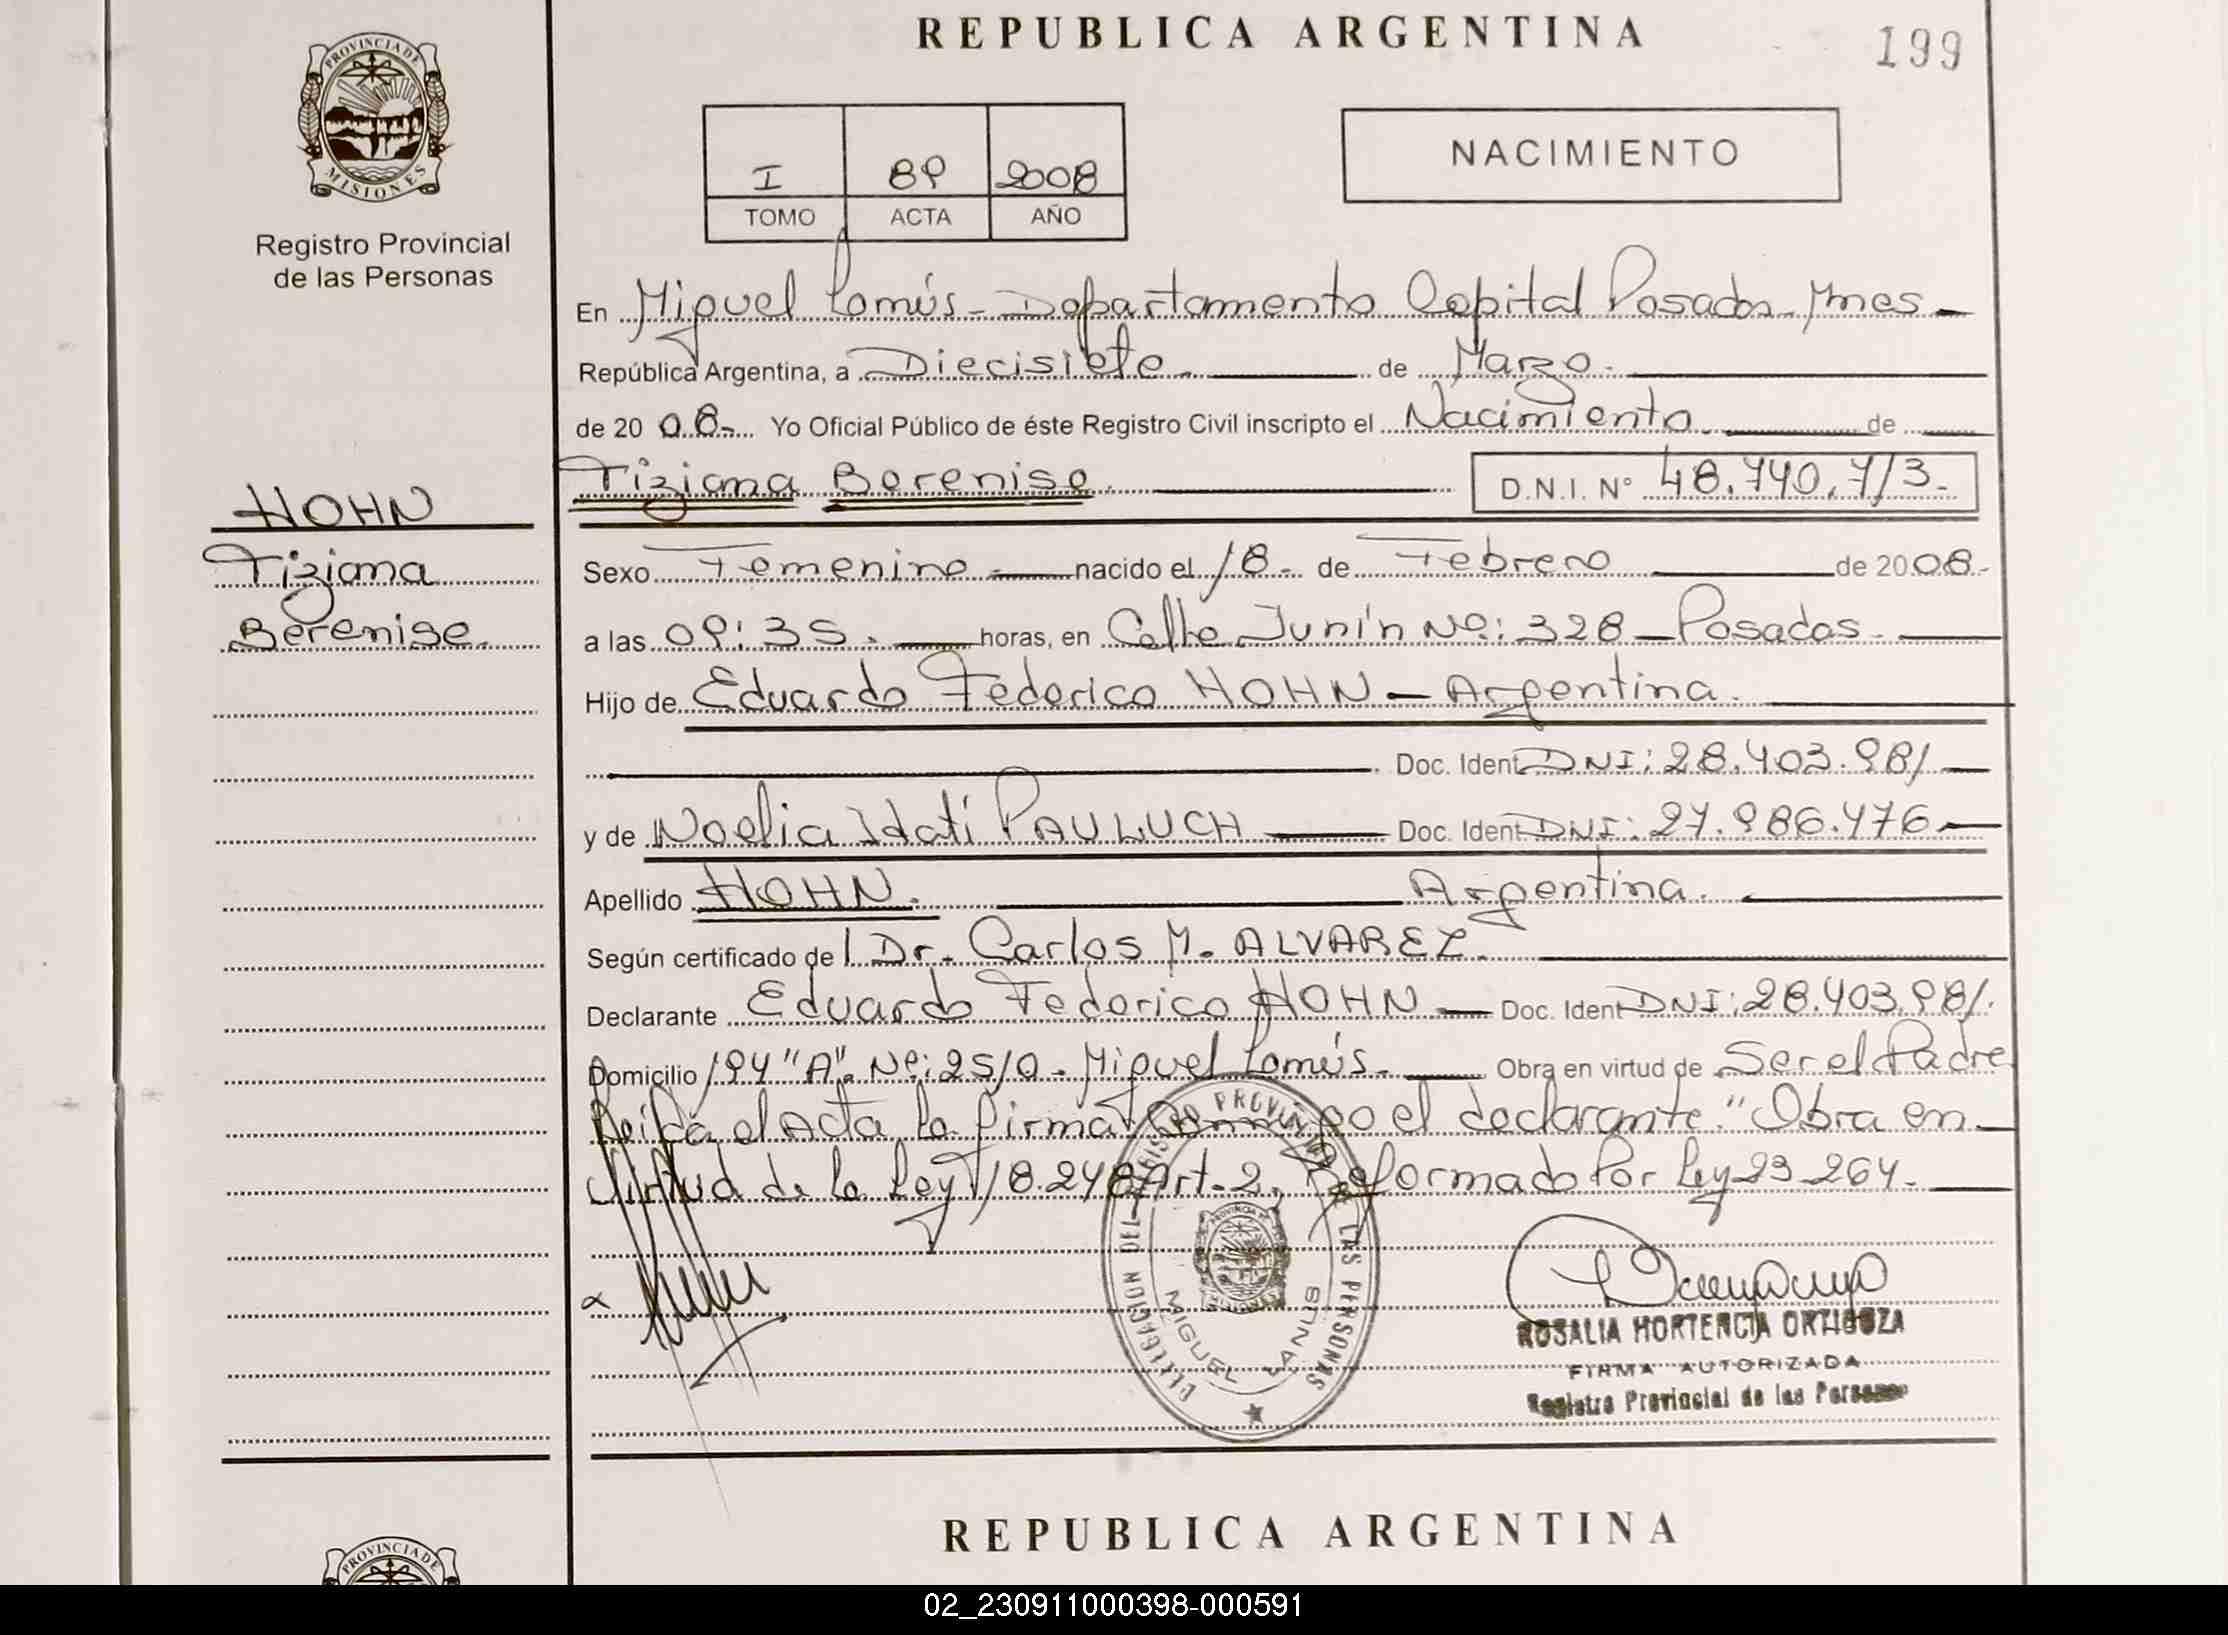 REPUBLICA ARGENTINA
199
PROVINCIA DE
MISIONES
Registro Provincial
de las Personas
NACIMIENTO
I 89 2008
TOMO ACTA AÑO
En Miguel Lanús - Departamento Capital Posadas - Mnes -
República Argentina, a Diecisiete. de Marzo.
de 20 08- Yo Oficial Público de éste Registro Civil inscripto el Nacimiento. de
Tiziana Berenise. D.N.I. Nº 48.740.713.-
HOHN
Tiziana
Berenise.
Sexo Femenino nacido el 18. de Febrero de 20 08.-
a las 09:35. horas, en Calle Junín Nº: 328 - Posadas.
Hijo de Eduardo Federico HOHN - Argentina.
Doc. Ident DNI: 28.403.981
y de Noelia Itatí PAULUCH Doc. Ident DNI: 27.986.476
Apellido HOHN. Argentina.
Según certificado de l Dr. Carlos M. ALVAREZ.
Declarante Eduardo Federico HOHN Doc. Ident DNI: 28.403.981.
Domicilio 194 "A" Nº: 2510 - Miguel Lanús. Obra en virtud de Ser el Padre
el Acta la firma el declarante. "Obra en
Virtud de la Ley 18.248 Art. 2, Reformado Por Ley 23.264.
DELEGACION DEL REGISTRO PROVINCIAL DE LAS PERSONAS
PROVINCIA DE
MISIONES
MIGUEL LANUS
ROSALIA HORTENCIA ORTIGOZA
FIRMA AUTORIZADA
Registro Provincial de las Personas
REPUBLICA ARGENTINA
PROVINCIA DE
02_230911000398-000591